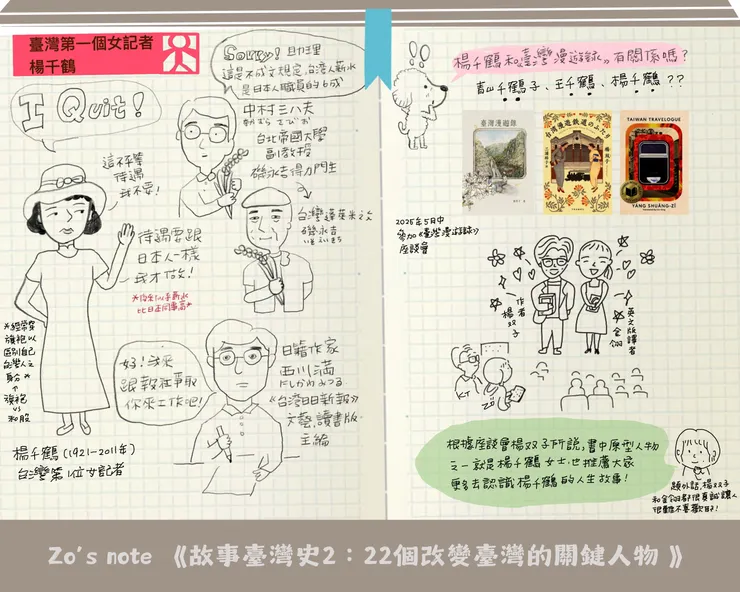 臺灣第一個女記者
楊千鶴
I Quit!
這不平等
待遇
我不要!
待遇要跟
日本人一樣
我才做!
旗袍
vs
和服
楊千鶴(1921-2011年)
台灣第1位女記者
Sorry! 助理
這是不成文規定,台灣人薪水
是日本人職員的6成
中村三八夫
台北帝國大學
副教授
磯永吉得力門生
台灣蓬萊米之父
磯永吉
いそ えいきち
好!我來
跟報社爭取
你來工作吧!
日籍作家
西川滿
にしかわ みつる
《台灣日日新報》
文藝、讀書版
主編
楊千鶴和《臺灣漫遊錄》有關係嗎?
青山千鶴子、王千鶴、楊千鶴??
臺灣漫遊錄
台湾漫遊鉄道のふたり
楊双子
TAIWAN TRAVELOGUE
YÁNG SHUĀNG-ZǏ
2025年5月中
參加《臺灣漫遊錄》
座談會
作者
楊双子
英文版譯者
金翎
KT
ZO
根據座談會楊双子所說,書中原型人物
之一就是楊千鶴女士,也推薦大家
更多去認識楊千鶴的人生故事!
題外話,楊双子
和金翎都很真誠讓人
很難不喜歡耶!
Zo's note 《故事臺灣史2:22個改變臺灣的關鍵人物》